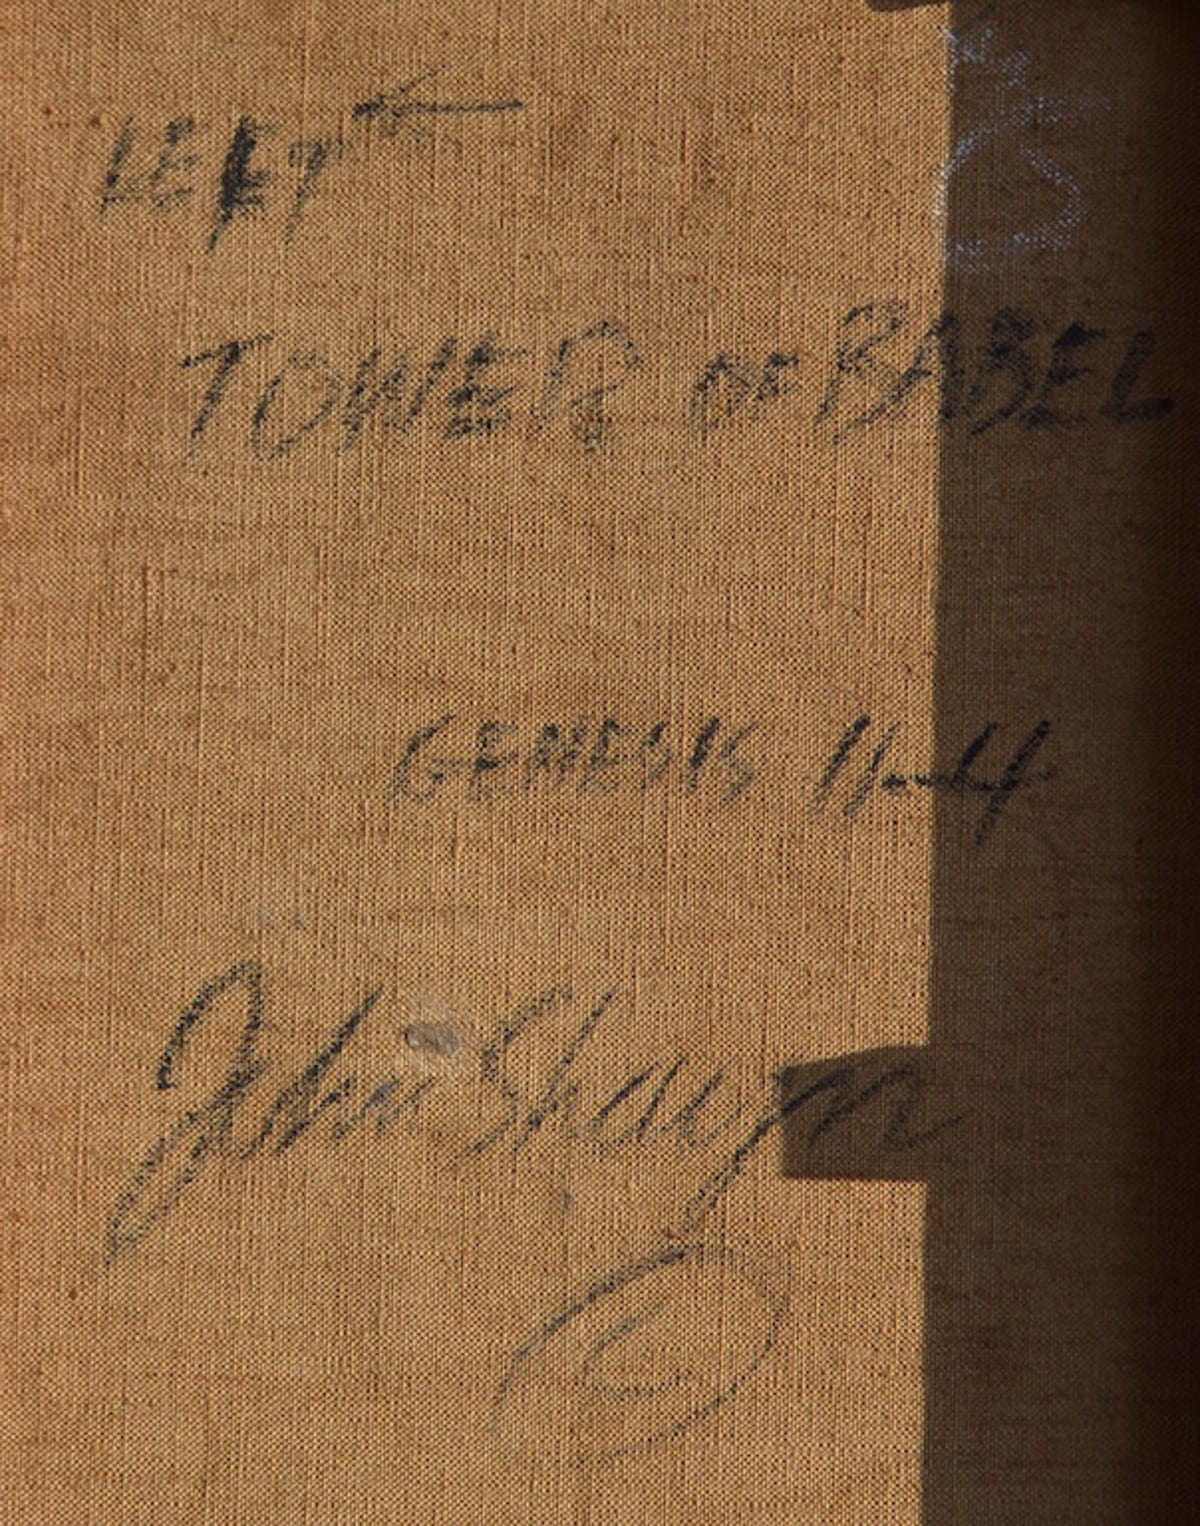 LEFT ←
TOWER OF BABEL
GENESIS 11-4
John Shayn
©